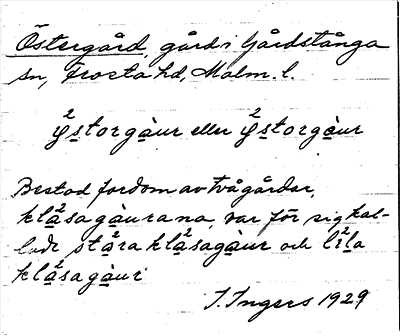 Östergård, gård i Gårdstånga
sn, Frosta hd, Malm. l.
²ystorgàur eller ²ystorgàur
Bestod fordom av två gårdar,
klå²sagàurana, var för sig kal-
lade stå²ra klå²sagàur och li²la
klå²sagàur.
I. Ingers 1929